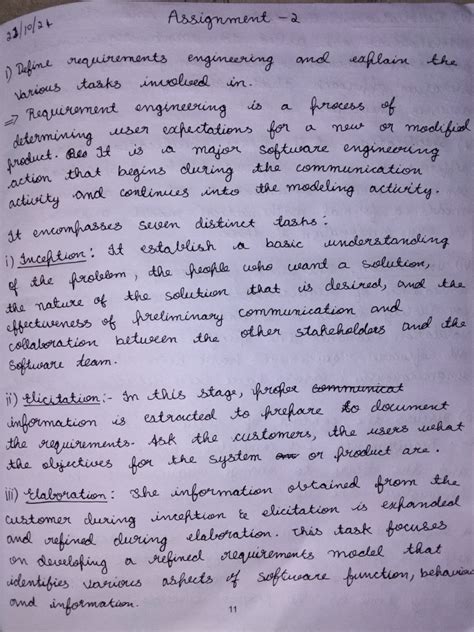 23/10/24
Assignment - 2
1) Define requirements engineering and explain the
various tasks involved in.
=> Requirement engineering is a process of
determining user expectations for a new or modified
product. It is a major software engineering
action that begins during the communication
activity and continues into the modeling activity.
It encompasses seven distinct tasks:
i) Inception: It establish a basic understanding
of the problem, the people who want a solution,
the nature of the solution that is desired, and the
effectiveness of preliminary communication and
collaboration between the other stakeholders and the
software team.
ii) Elicitation:- In this stage, proper communicat
information is extracted to prepare to document
the requirements. Ask the customers, the users what
the objectives for the system or product are.
iii) Elaboration: The information obtained from the
customer during inception & elicitation is expanded
and refined during elaboration. This task focuses
on developing a refined requirements model that
identifies various aspects of software function, behaviour
and information.
11